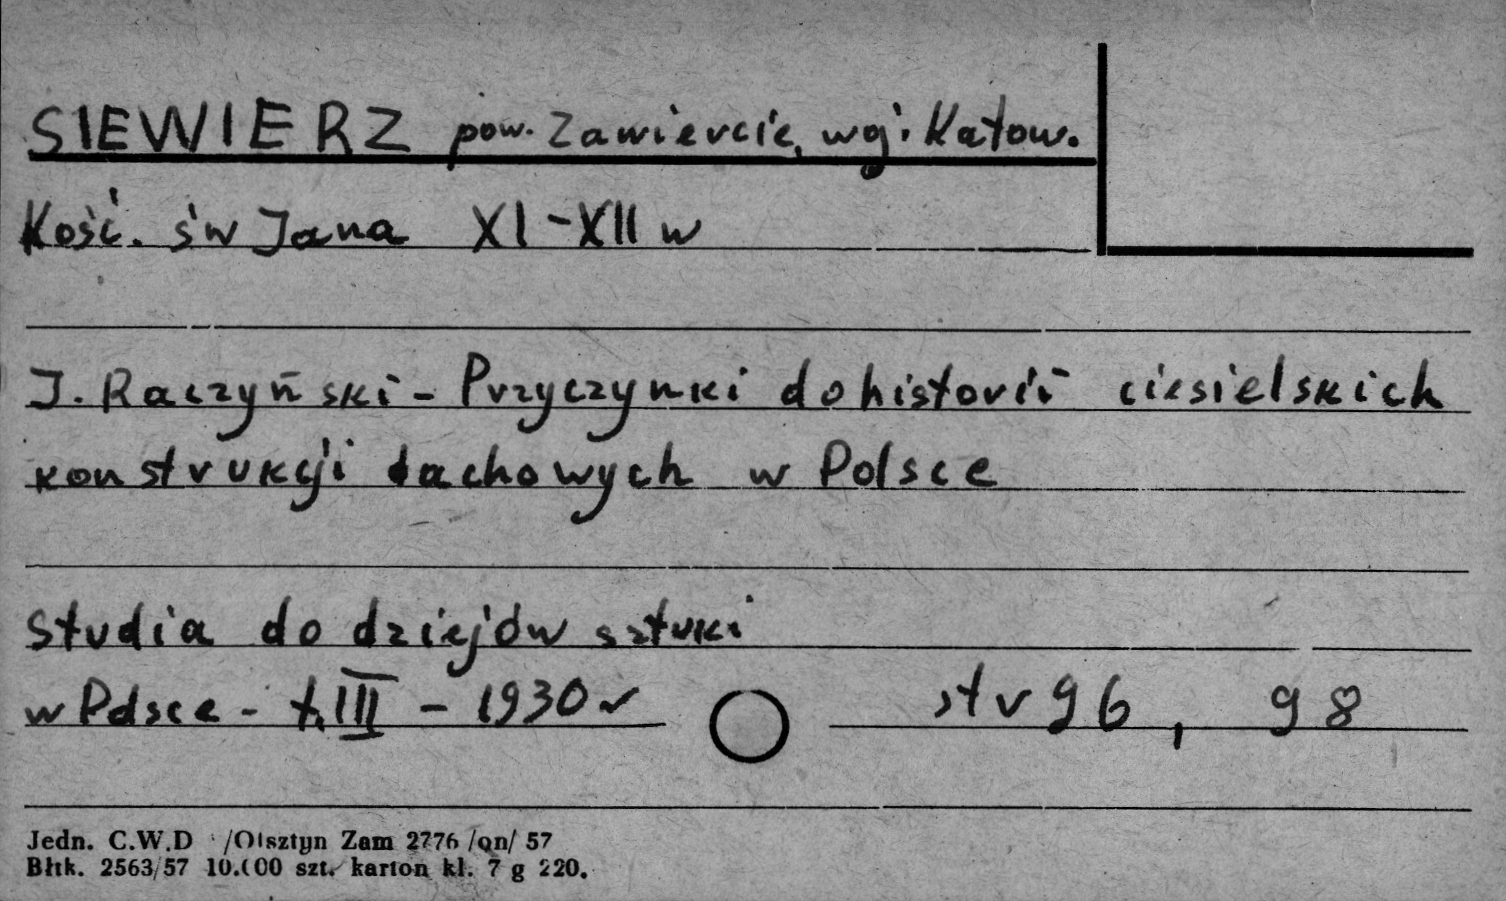 SIEWIERZ pow. Zawiercie, woj. Katow.
Kość. św Jana XI-XII w
J. Raczyński - Przyczynki do historii ciesielskich
konstrukcji dachowych w Polsce
Studia do dziejów sztuki
w Polsce - t. III - 1930 r str 96, 98
Jedn. C.W.D /Olsztyn Zam 2776 /on/ 57
Błtk. 2563/57 10.000 szt. karton kl. 7 g 220.